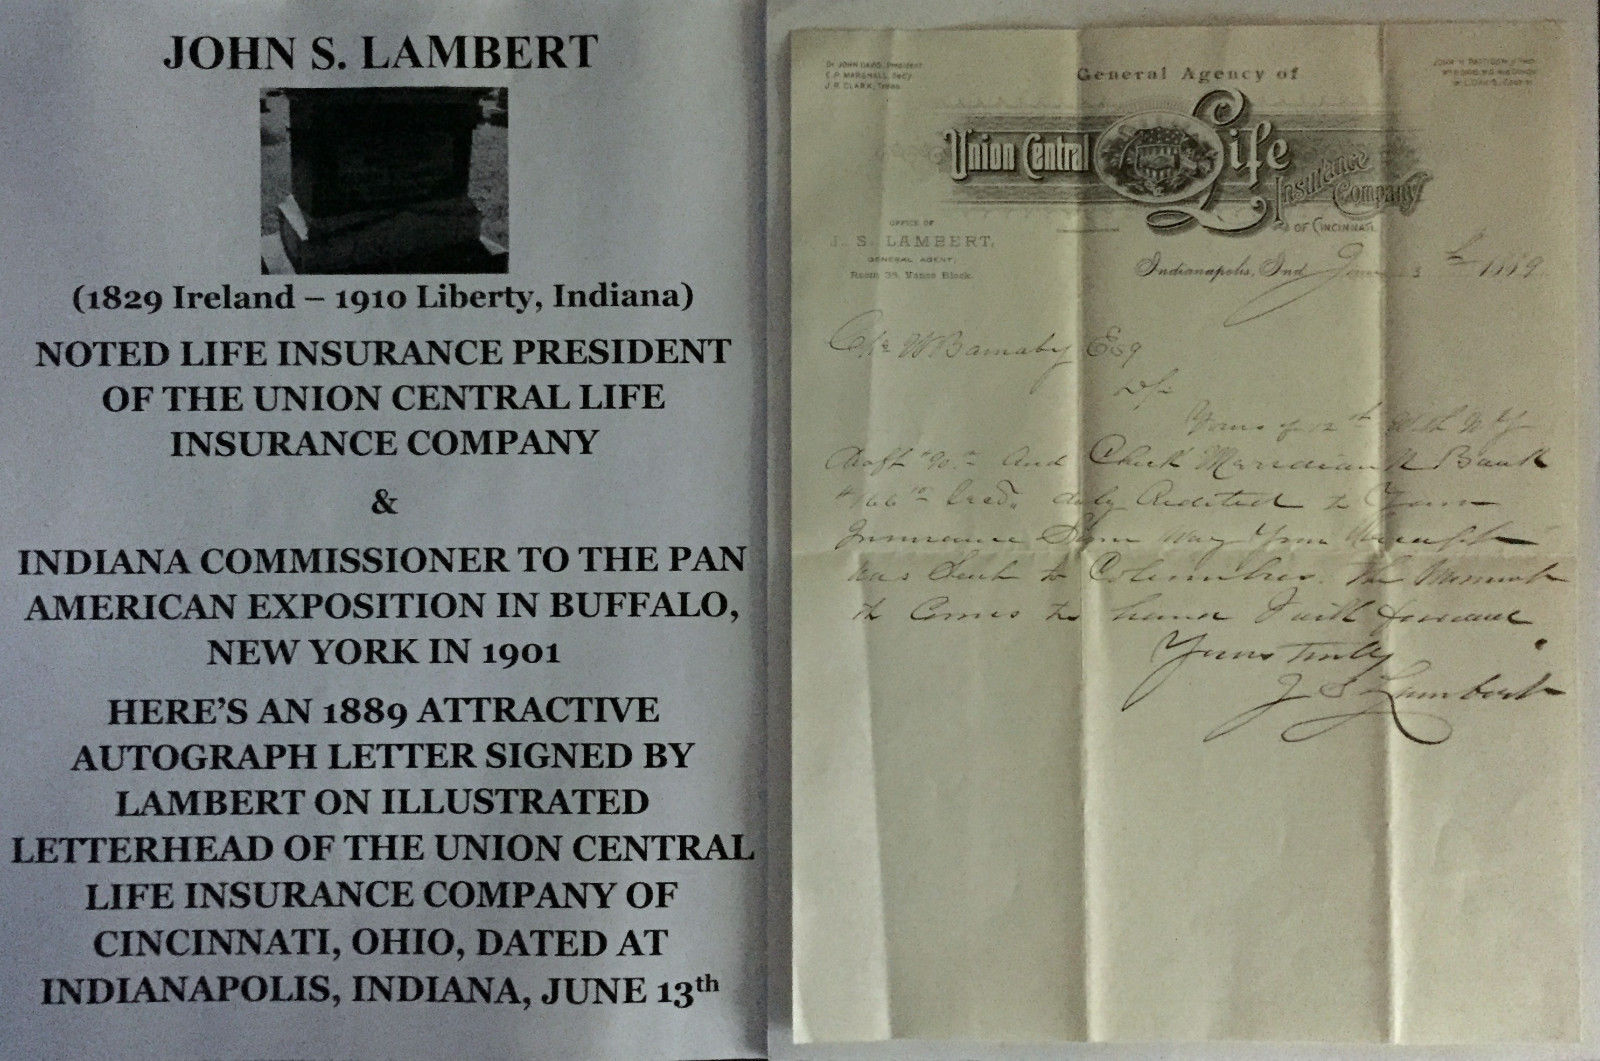 JOHN S. LAMBERT
(1829 Ireland – 1910 Liberty, Indiana)
NOTED LIFE INSURANCE PRESIDENT
OF THE UNION CENTRAL LIFE
INSURANCE COMPANY
&
INDIANA COMMISSIONER TO THE PAN
AMERICAN EXPOSITION IN BUFFALO,
NEW YORK IN 1901
HERE'S AN 1889 ATTRACTIVE
AUTOGRAPH LETTER SIGNED BY
LAMBERT ON ILLUSTRATED
LETTERHEAD OF THE UNION CENTRAL
LIFE INSURANCE COMPANY OF
CINCINNATI, OHIO, DATED AT
INDIANAPOLIS, INDIANA, JUNE 13th
Dr JOHN DAVIS, President
E. P. MARSHALL, Secy.
J. R. CLARK, Treas.
General Agency of
Union Central Life
Insurance
Company
OF CINCINNATI.
OFFICE OF
J. S. LAMBERT,
GENERAL AGENT,
Room 38, Vance Block.
Indianapolis, Ind. June 13th 1889
W Barnaby Esq
Yours of 12th with N Y
Draft and Check Meridian N Bank
duly Credited to Your
Insurance
was Sent to Columbus. The Moment
it Comes to hand I will forward
Yours Truly
J S Lambert